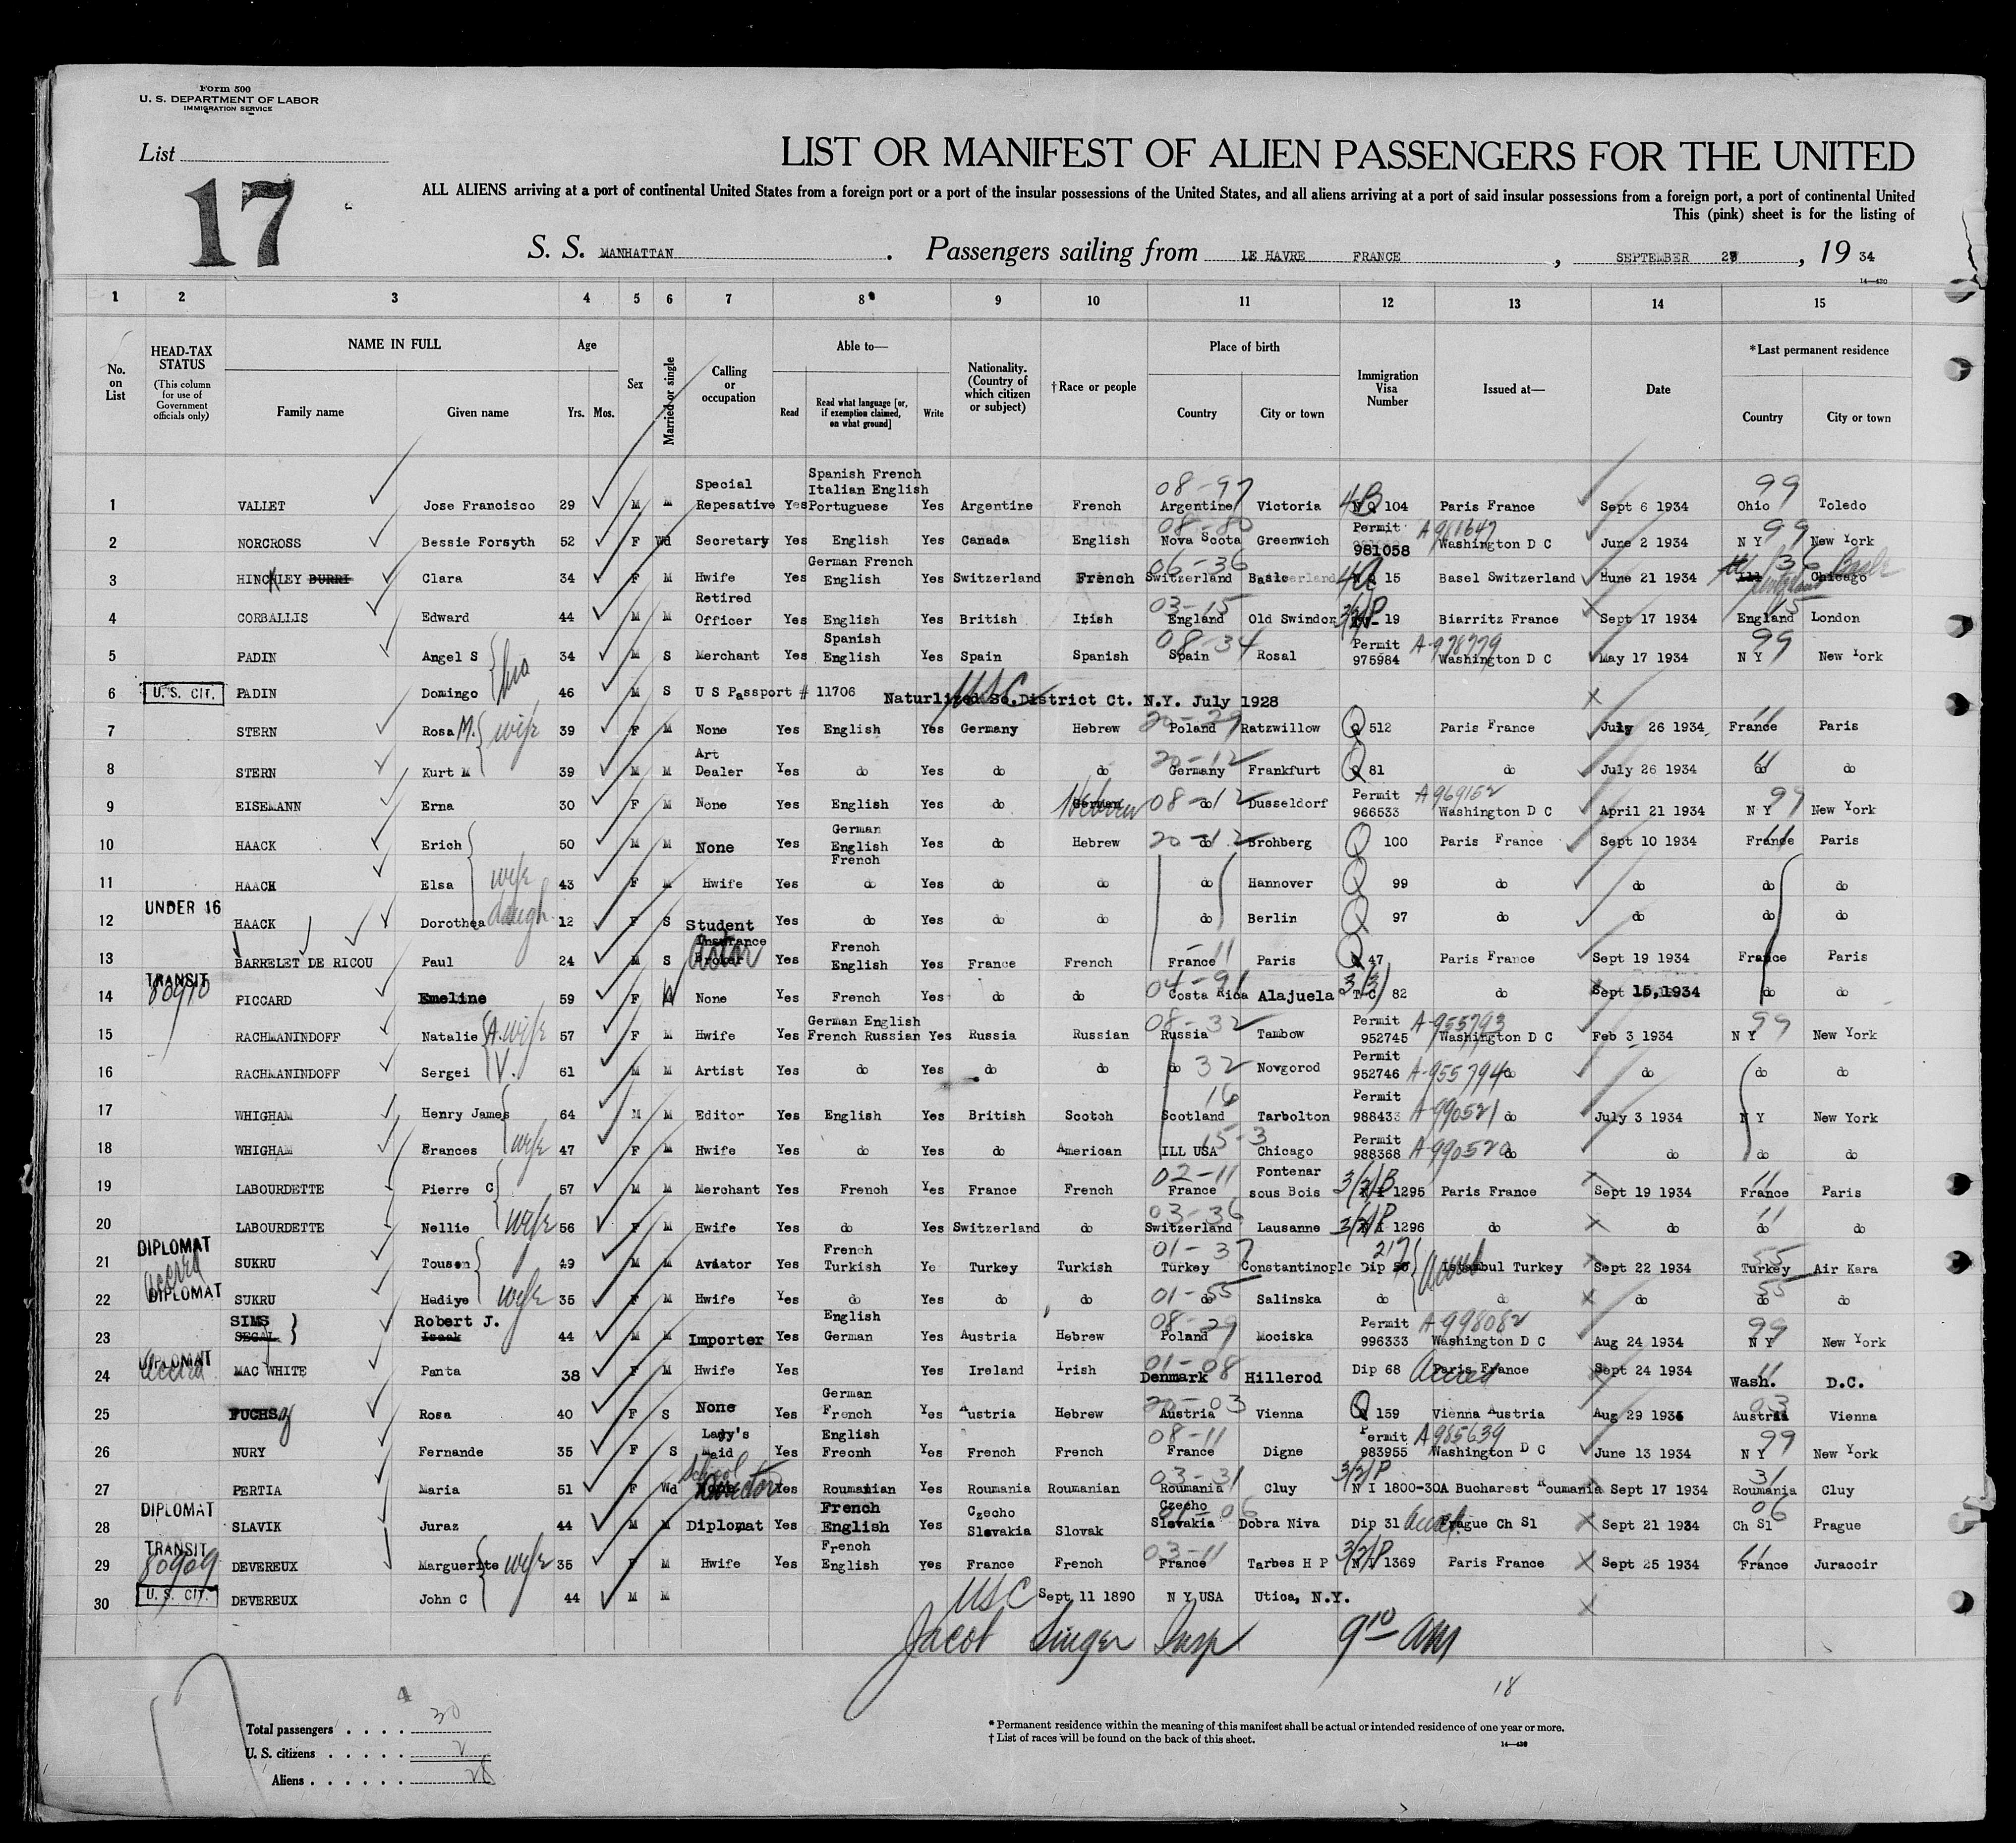 Form 500
U. S. DEPARTMENT OF LABOR
IMMIGRATION SERVICE
List
17
LIST OR MANIFEST OF ALIEN PASSENGERS FOR THE UNITED
ALL ALIENS arriving at a port of continental United States from a foreign port or a port of the insular possessions of the United States, and all aliens arriving at a port of said insular possessions from a foreign port, a port of continental United
This (pink) sheet is for the listing of
S. S. MANHATTAN . Passengers sailing from LE HAVRE FRANCE , SEPTEMBER , 19 34
14—430
1 2 3 4 5 6 7 8 9 10 11 12 13 14 15
No. on List
HEAD-TAX STATUS
(This column for use of Government officials only)
NAME IN FULL
Family name Given name
Age
Yrs. Mos.
Sex
Married or single
Calling or occupation
Able to—
Read
Read what language [or, if exemption claimed, on what ground]
Write
Nationality. (Country of which citizen or subject)
†Race or people
Place of birth
Country City or town
Immigration Visa Number
Issued at—
Date
*Last permanent residence
Country City or town
1 VALLET Jose Francisco 29 M M Special Repesative Yes Spanish French Italian English Portuguese Yes Argentine French 08-97 Argentine Victoria 104 Paris France Sept 6 1934 99 Ohio Toledo
2 NORCROSS Bessie Forsyth 52 F Wd Secretary Yes English Yes Canada English 08-80 Nova Scota Greenwich Permit 981058 A 961647 Washington D C June 2 1934 99 N Y New York
3 HINCKLEY BURRI Clara 34 F M Hwife Yes German French English Yes Switzerland French 06-36 Switzerland Basle 4 Q 15 Basel Switzerland Hune 21 1934 Ill 36 Chicago Basle
4 CORBALLIS Edward 44 M M Retired Officer Yes English Yes British Itish 03-15 England Old Swindon 19 Biarritz France Sept 17 1934 15 England London
5 PADIN Angel S 34 M S Merchant Yes Spanish English Yes Spain Spanish 08-34 Spain Rosal Permit 975984 A-978779 Washington D C May 17 1934 99 N Y New York
6 U. S. CIT. PADIN Domingo bro 46 M S U S Passport # 11706 USC Naturlized So. District Ct. N.Y. July 1928
7 STERN Rosa M. wife 39 F M None Yes English Yes Germany Hebrew 20-29 Poland Ratzwillow Q 512 Paris France July 26 1934 11 France Paris
8 STERN Kurt M 39 M M Art Dealer Yes do Yes do do 20-12 Germany Frankfurt Q 81 do July 26 1934 11 do do
9 EISEMANN Erna 30 F M None Yes English Yes do German Hebrew 08-12 do Dusseldorf Permit 966533 A 969152 Washington D C April 21 1934 99 N Y New York
10 HAACK Erich 50 M M None Yes German English French Yes do Hebrew 20-12 do Brohberg Q 100 Paris France Sept 10 1934 11 France Paris
11 HAACK Elsa wife 43 F M Hwife Yes do Yes do do do Hannover Q 99 do do do do
12 UNDER 16 HAACK Dorothea daugh. 12 F S Student Yes do Yes do do do Berlin Q 97 do do do do
13 BARRELET DE RICOU Paul 24 M S Insurance Broker actor Yes French English Yes France French France 11 Paris Q 47 Paris France Sept 19 1934 France Paris
14 TRANSIT 80910 PICCARD Emeline 59 F W None Yes French Yes do do 04-91 Costa Rica Alajuela 82 do Sept 15,1934 do do
15 RACHMANINDOFF Natalie A. wife 57 F M Hwife Yes German English French Russian Yes Russia Russian 08-32 Russia Tambow Permit 952745 A-955793 Washington D C Feb 3 1934 99 N Y New York
16 RACHMANINDOFF Sergei V. 61 M M Artist Yes do Yes do do do 32 Novgorod Permit 952746 A-955794 do do do do
17 WHIGHAM Henry James 64 M M Editor Yes English Yes British Scotch 16 Scotland Tarbolton Permit 988433 A-990521 do July 3 1934 N Y New York
18 WHIGHAM Frances wife 47 F M Hwife Yes do Yes do American 15-3 ILL USA Chicago Permit 988368 A-990520 do do do do
19 LABOURDETTE Pierre C 57 M M Merchant Yes French Yes France French 02-11 France Fontenar sous Bois 1295 Paris France Sept 19 1934 11 France Paris
20 LABOURDETTE Nellie wife 56 F M Hwife Yes do Yes Switzerland do 03-36 Switzerland Lausanne 1296 do do 11 do do
21 DIPLOMAT SUKRU Tousen 49 M M Aviator Yes French Turkish Ye Turkey Turkish 01-37 Turkey Constantinople Dip 217 Istambul Turkey Sept 22 1934 55 Turkey Air Kara
22 DIPLOMAT SUKRU Hadiye wife 35 F M Hwife Yes do Yes do do 01-55 do Salinska do do do 55 do do
23 SIMS SEGAL Robert J. Isaak 44 M M Importer Yes English German Yes Austria Hebrew 08-29 Poland Mociska Permit 996333 A 998082 Washington D C Aug 24 1934 99 N Y New York
24 DIPLOMAT MAC WHITE Panta 38 F M Hwife Yes Yes Ireland Irish 01-08 Denmark Hillerod Dip 68 Paris France Sept 24 1934 11 Wash. D.C.
25 FUCHS Rosa 40 F S None Yes German French Yes Austria Hebrew 20-03 Austria Vienna Q 159 Vienna Austria Aug 29 1934 03 Austria Vienna
26 NURY Fernande 35 F S Lady's Maid Yes English Frecnh Yes French French 08-11 France Digne Permit 983955 A 985639 Washington D C June 13 1934 99 N Y New York
27 PERTIA Maria 51 F Wd None School Director Yes Roumanian Yes Roumania Roumanian 03-31 Roumania Cluy N I 1800-30A Bucharest Roumania Sept 17 1934 31 Roumania Cluy
28 DIPLOMAT SLAVIK Juraz 44 M M Diplomat Yes French English Yes Czecho Slovakia Slovak 01-06 Czecho Slovakia Dobra Niva Dip 31 Prague Ch Sl Sept 21 1934 06 Ch Sl Prague
29 TRANSIT 80909 DEVEREUX Marguerite wife 35 F M Hwife Yes French English Yes France French 03-11 France Tarbes H P 1369 Paris France Sept 25 1934 11 France Juraccir
30 U. S. CIT. DEVEREUX John C 44 M M USC Sept 11 1890 N Y USA Utica, N.Y.
Jacob Singer Insp 9 10 AM
18
4
Total passengers . . . . 30
U. S. citizens . . . . . 2
Aliens . . . . . . 28
* Permanent residence within the meaning of this manifest shall be actual or intended residence of one year or more.
† List of races will be found on the back of this sheet.
14—430